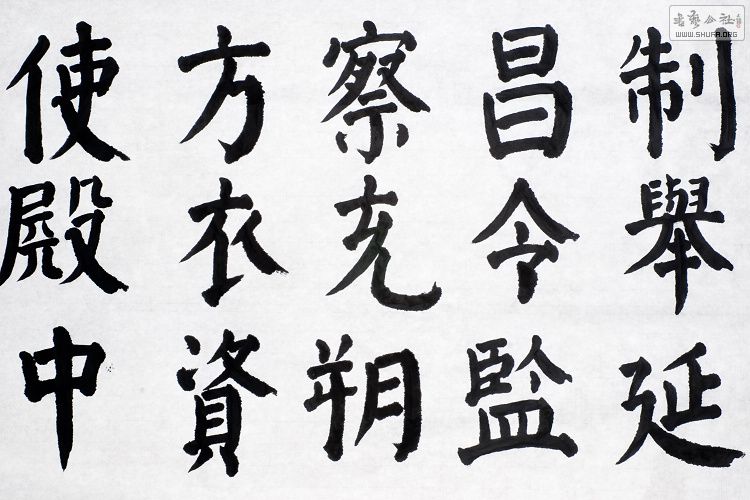 制舉延
昌令監
察充朔
方衣資
使殿中
WWW.SHUFA.ORG